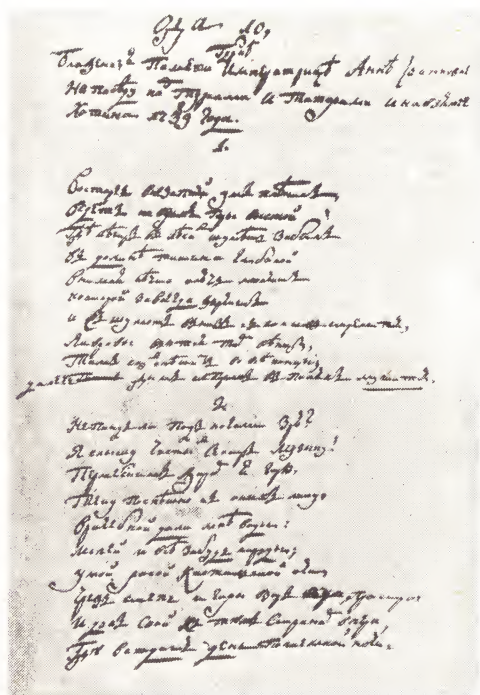 Ода 10,
Блаженной Памяти Императрицѣ Аннѣ Іоанновнѣ
На побѣду надъ Турками и Татарами и на взятіе
Хотина 1739 Года.
1.
Восторгъ внезапной умъ плѣнилъ,
Ведетъ на верьхъ горы высокой
Гдѣ вѣтръ въ лѣсахъ шумѣть забылъ
Въ долинѣ тишина глубокой
Внимая нѣчто ключь молчитъ
которой завсегда журчитъ
и съ шумомъ внизъ съ холмовъ стремится,
Лавровы вьются тамъ вѣнцы,
Тамъ слухъ спѣшитъ во всѣ концы;
далече дымъ въ поляхъ курится.
2
Не Пиндъ ли подъ ногами зрю?
Я слышу чистыхъ сестръ музыку!
Пермесскимъ жаромъ я горю.
Теку поспѣшно къ оныхъ лику
Врачебной дали мнѣ воды:
испей и всѣ забудь труды;
умой росой Кастальской очи,
Чрезъ степь и горы взоръ простри
И духъ свой къ тѣмъ странамъ впери,
Гдѣ всходитъ день по темной ночи.